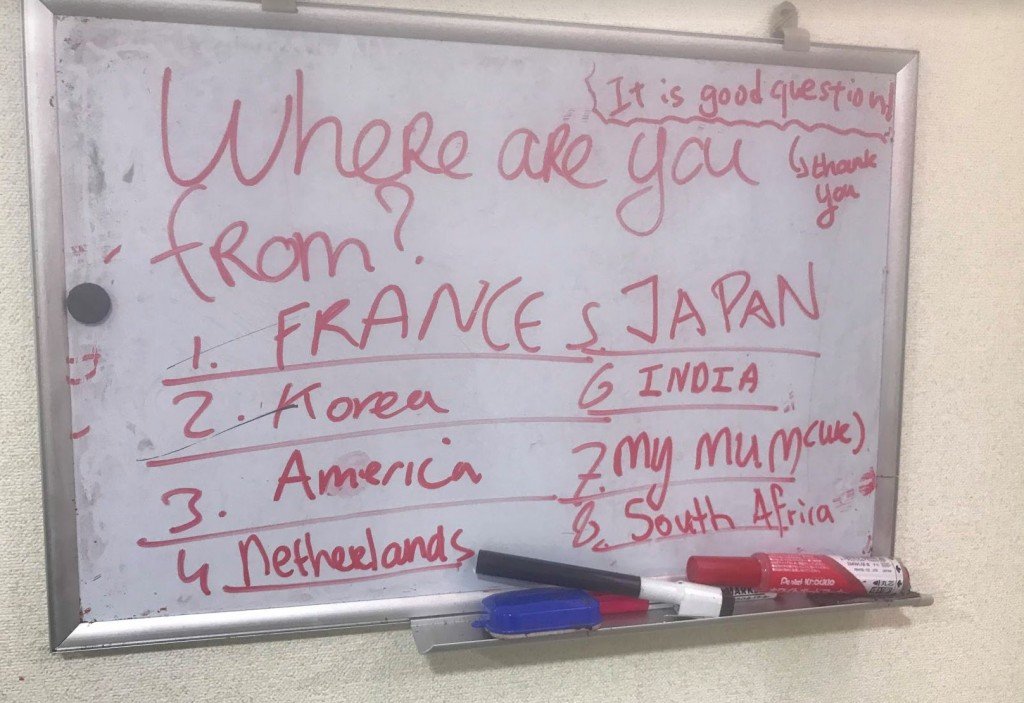 Where are you
from?
{It is good question!
↳ thank
you
1. FRANCE
2. Korea
3. America
4 Netherlands
5. JAPAN
6 INDIA
7. My MUM (UK)
8. South Africa
Pentel